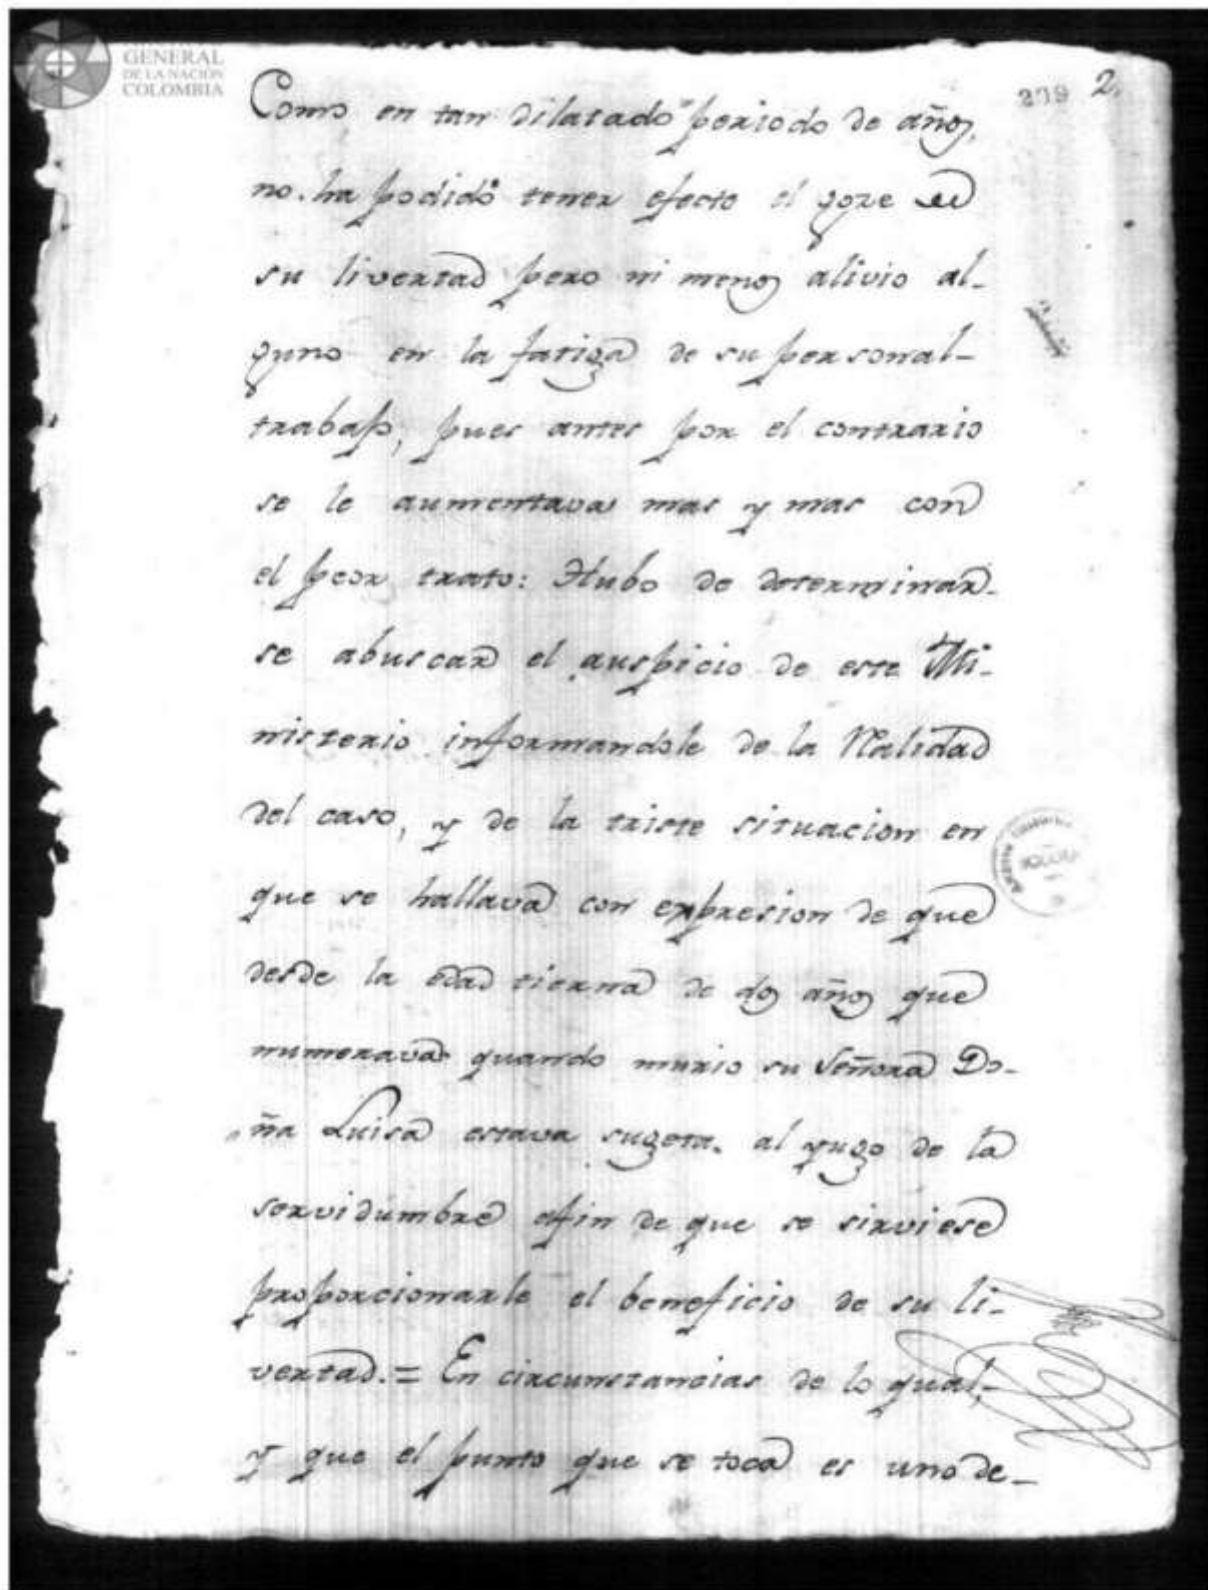 GENERAL
DE LA NACIÓN
COLOMBIA
239 2.
Como en tan dilatado periodo de años,
no ha podido tener efecto el goze de
su livertad pero ni menos alivio al-
guno en la fatiga de su personal
trabajo, pues antes por el contrario
se le aumentava mas y mas con
el peor trato: Hubo de determinar-
se abuscar el auspicio de este Mi-
nisterio informandole de la Realidad
del caso, y de la triste situacion en
que se hallava con expresion de que
desde la edad tierna de dos años que
numerava quando murio su Señora Do-
ña Luisa estava sugeta al yugo de la
servidumbre afin de que se sirviese
proporcionarle el beneficio de su li-
vertad. = En circunstancias de lo qual,
y que el punto que se toca es uno de-